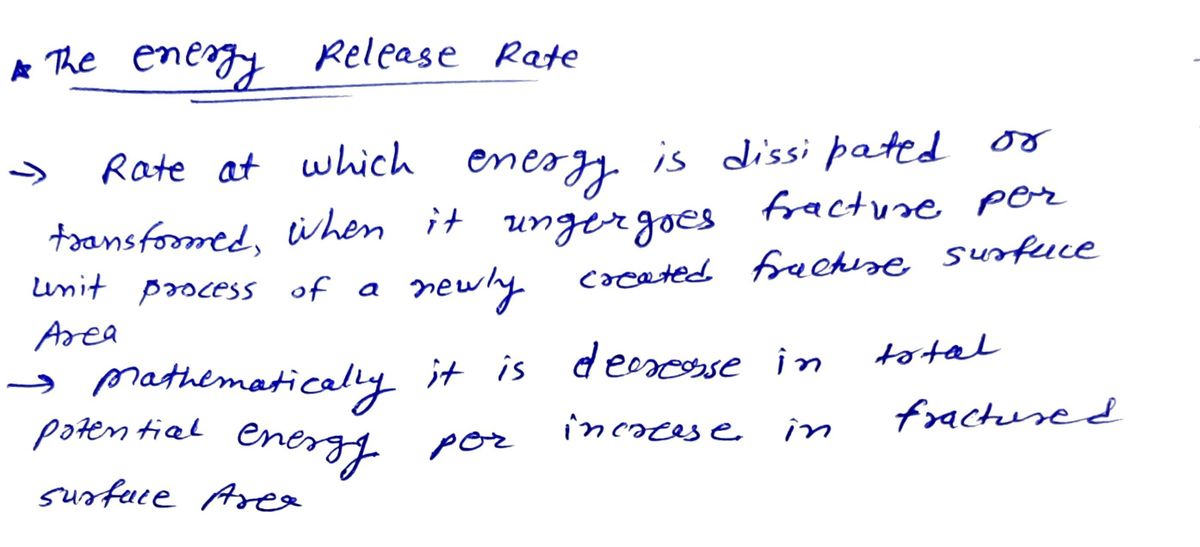 * The energy Release Rate
→ Rate at which energy is dissipated or
transformed, when it ungergoes fracture per
unit process of a newly created fracture surface
Area
→ Mathematically it is decrease in total
potential energy per increase in fractured
surface Area